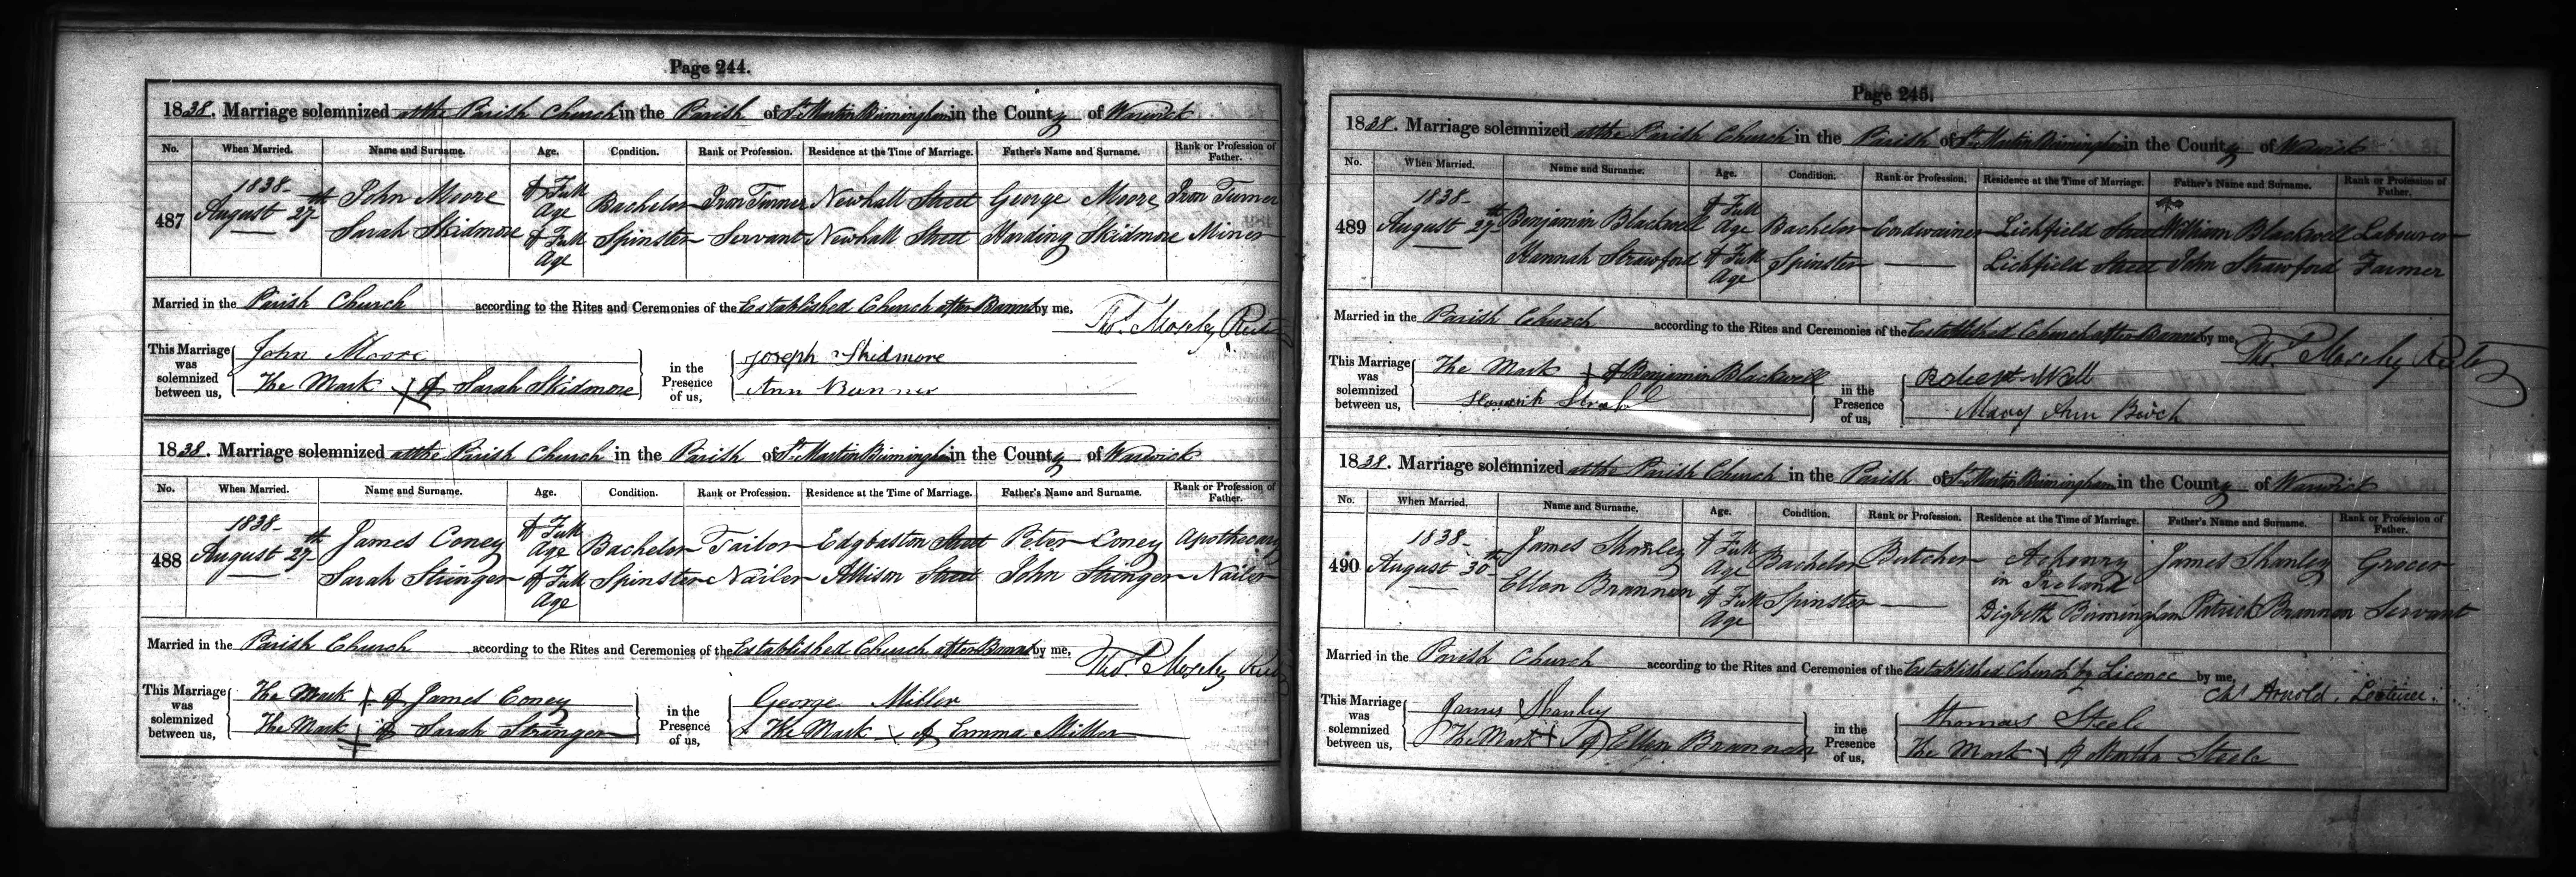 Page 244.
1838. Marriage solemnized at the Parish Church in the Parish of St. Martin Birmingham in the County of Warwick
No. When Married. Name and Surname. Age. Condition. Rank or Profession. Residence at the Time of Marriage. Father's Name and Surname. Rank or Profession of Father.
487 1838 August 27th John Moore Of Full Age Bachelor Iron Turner Newhall Street George Moore Iron Turner
Sarah Skidmore Of Full Age Spinster Servant Newhall Street Harding Skidmore Miner
Married in the Parish Church according to the Rites and Ceremonies of the Established Church after Banns by me,
Thos. Moseley Rector
This Marriage was solemnized between us, John Moore in the Presence of us, Joseph Skidmore
The Mark X of Sarah Skidmore Ann Bunner
1838. Marriage solemnized at the Parish Church in the Parish of St. Martin Birmingham in the County of Warwick
No. When Married. Name and Surname. Age. Condition. Rank or Profession. Residence at the Time of Marriage. Father's Name and Surname. Rank or Profession of Father.
488 1838 August 27th James Coney Of Full Age Bachelor Tailor Edgbaston Street Peter Coney Apothecary
Sarah Stringer Of Full Age Spinster Nailer Allison Street John Stringer Nailer
Married in the Parish Church according to the Rites and Ceremonies of the Established Church after Banns by me,
Thos. Moseley Rector
This Marriage was solemnized between us, The Mark X of James Coney in the Presence of us, George Miller
The Mark X of Sarah Stringer The Mark X of Emma Miller
Page 245.
1838. Marriage solemnized at the Parish Church in the Parish of St. Martin Birmingham in the County of Warwick
No. When Married. Name and Surname. Age. Condition. Rank or Profession. Residence at the Time of Marriage. Father's Name and Surname. Rank or Profession of Father.
489 1838 August 29th Benjamin Blackwell Of Full Age Bachelor Cordwainer Lichfield Street William Blackwell Labourer
Hannah Strawford Of Full Age Spinster — Lichfield Street John Strawford Farmer
Married in the Parish Church according to the Rites and Ceremonies of the Established Church after Banns by me,
Thos. Moseley Rector
This Marriage was solemnized between us, The Mark X of Benjamin Blackwell in the Presence of us, Robert Well
Mary Ann Birch
1838. Marriage solemnized at the Parish Church in the Parish of St. Martin Birmingham in the County of Warwick
No. When Married. Name and Surname. Age. Condition. Rank or Profession. Residence at the Time of Marriage. Father's Name and Surname. Rank or Profession of Father.
490 1838 August 30th James Shanley Of Full Age Bachelor Butcher Achonry in Ireland James Shanley Grocer
Ellen Brannon Of Full Age Spinster — Digbeth Birmingham Patrick Brannon Servant
Married in the Parish Church according to the Rites and Ceremonies of the Established Church by Licence by me,
Chs. Arnold, Lecturer.
This Marriage was solemnized between us, James Shanley in the Presence of us, Thomas Steele
The Mark X of Ellen Brannon The Mark X of Martha Steele